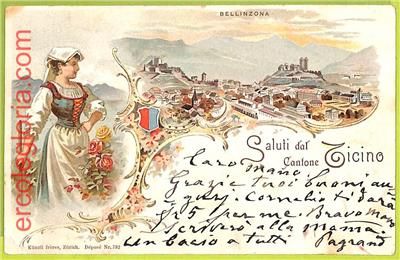 BELLINZONA
ercolegloria.com
Saluti dal
Cantone Ticino
Caro
Grazie tuoi buoni au
guri. Cornelio ti darà
fr 5 per me. Bravo
scriverò alla mamma
un bacio a tutti
Künzli frères, Zürich. Déposé Nr. 792